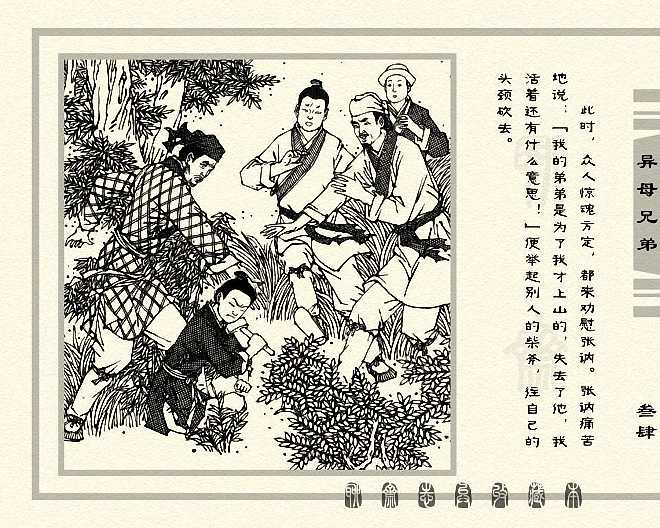 此时，众人惊魂方定，都来劝慰张讷。张讷痛苦
地说：“我的弟弟是为了我才上山的，失去了他，我
活着还有什么意思！”便举起别人的柴斧，往自己的
头颈砍去。
异母兄弟
叁肆